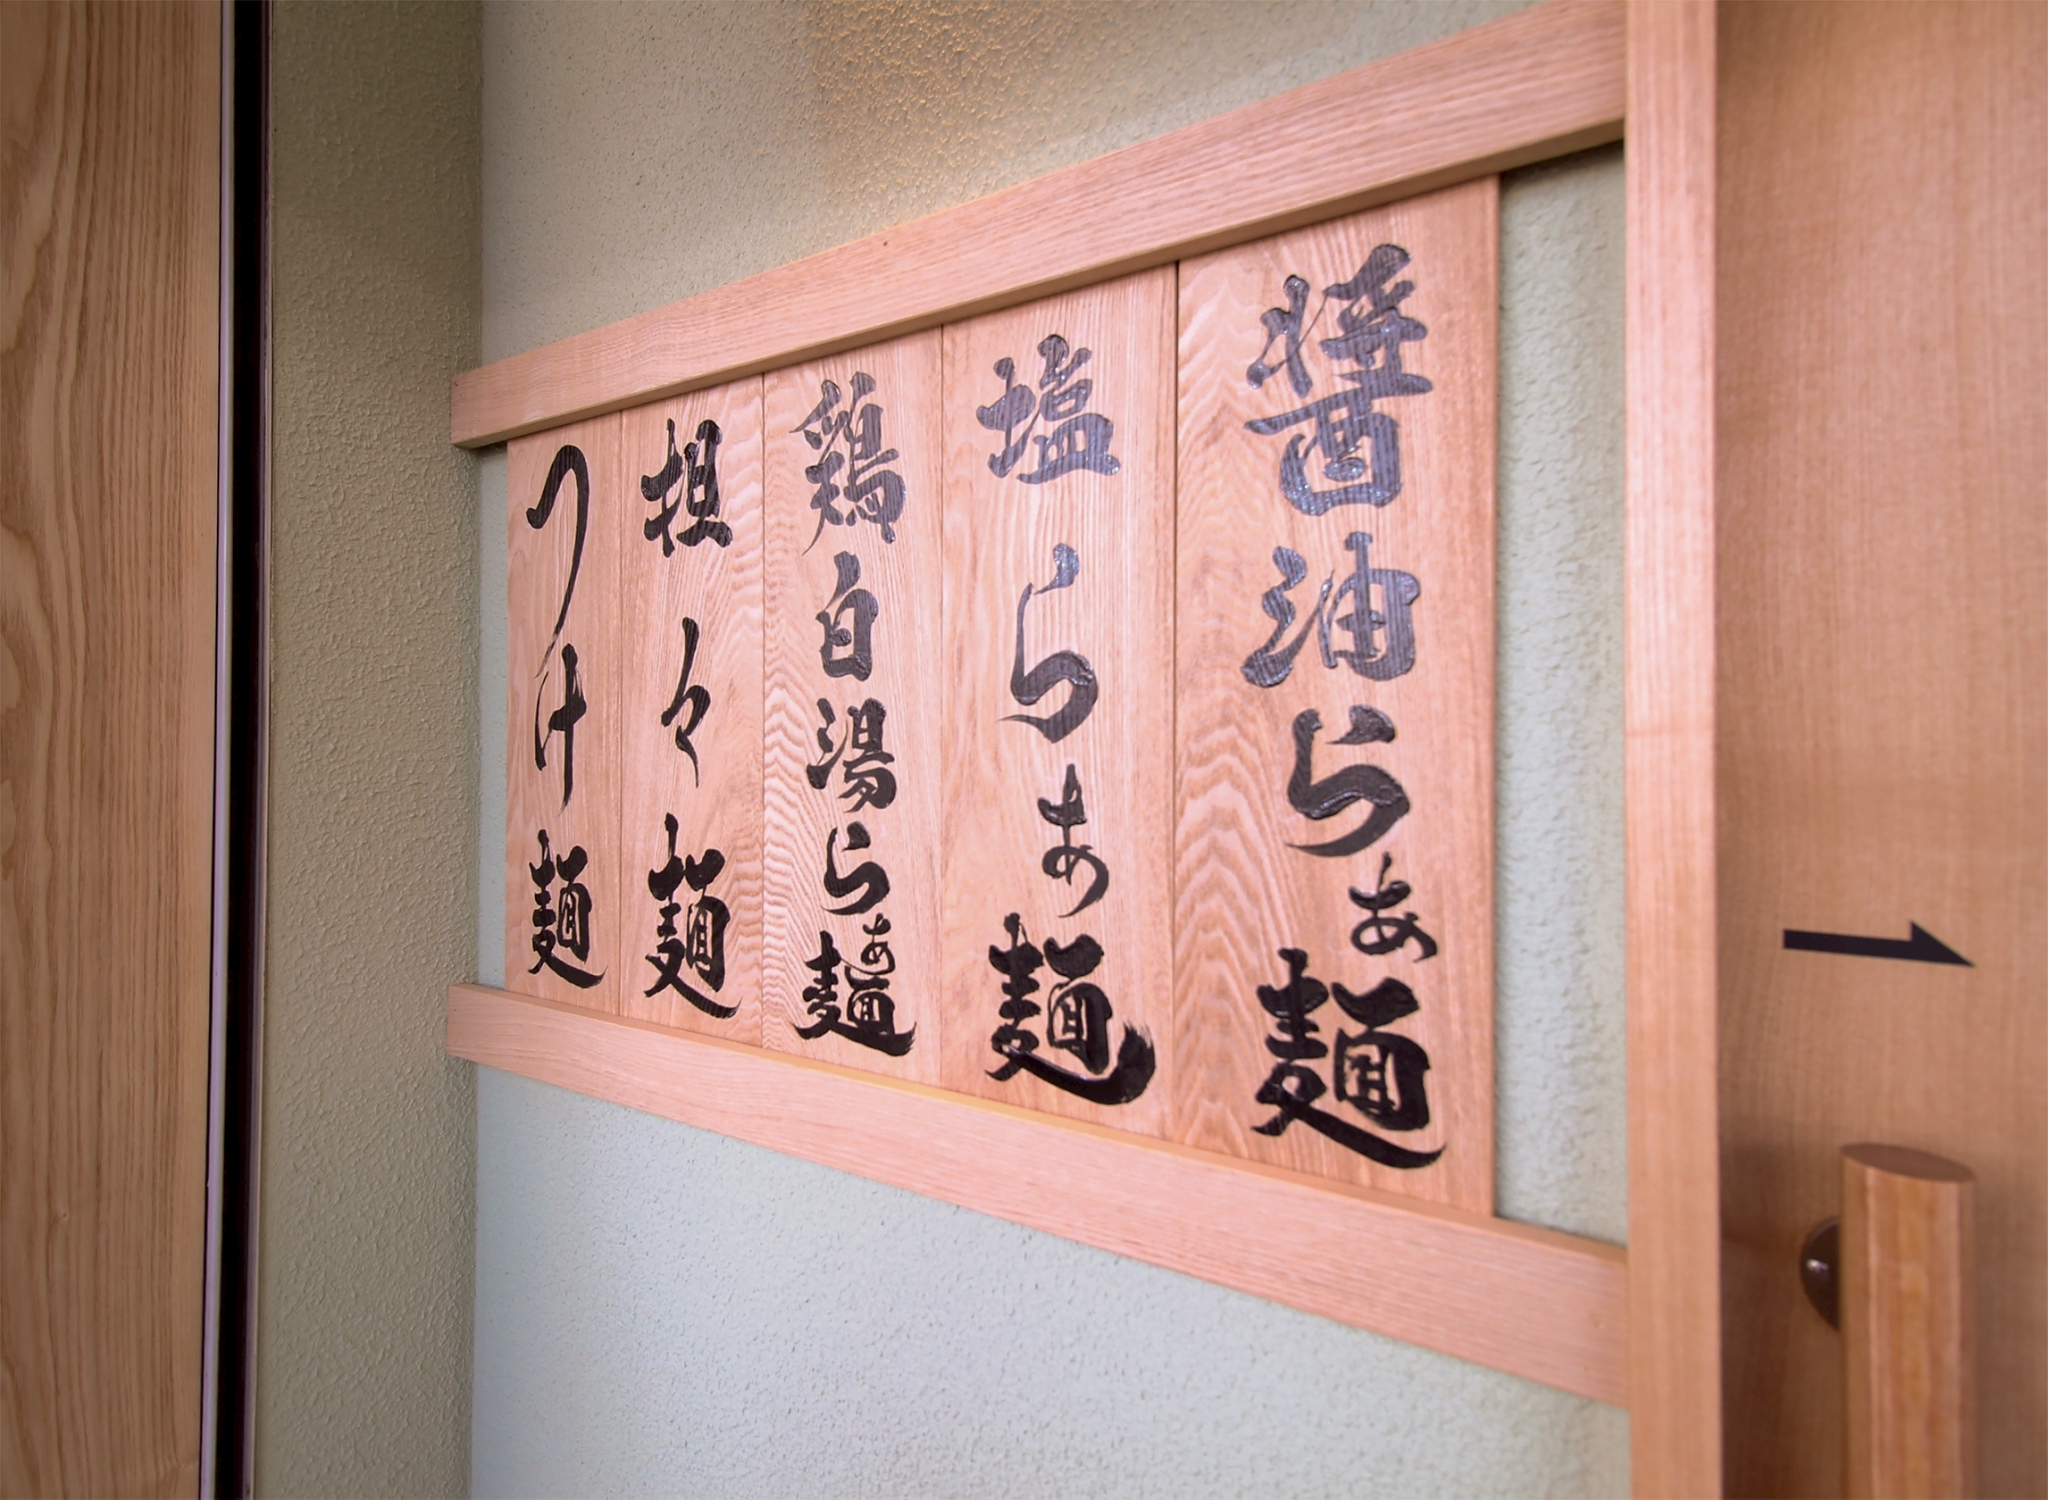 醤油らぁ麺
塩らぁ麺
鶏白湯らぁ麺
担々麺
つけ麺